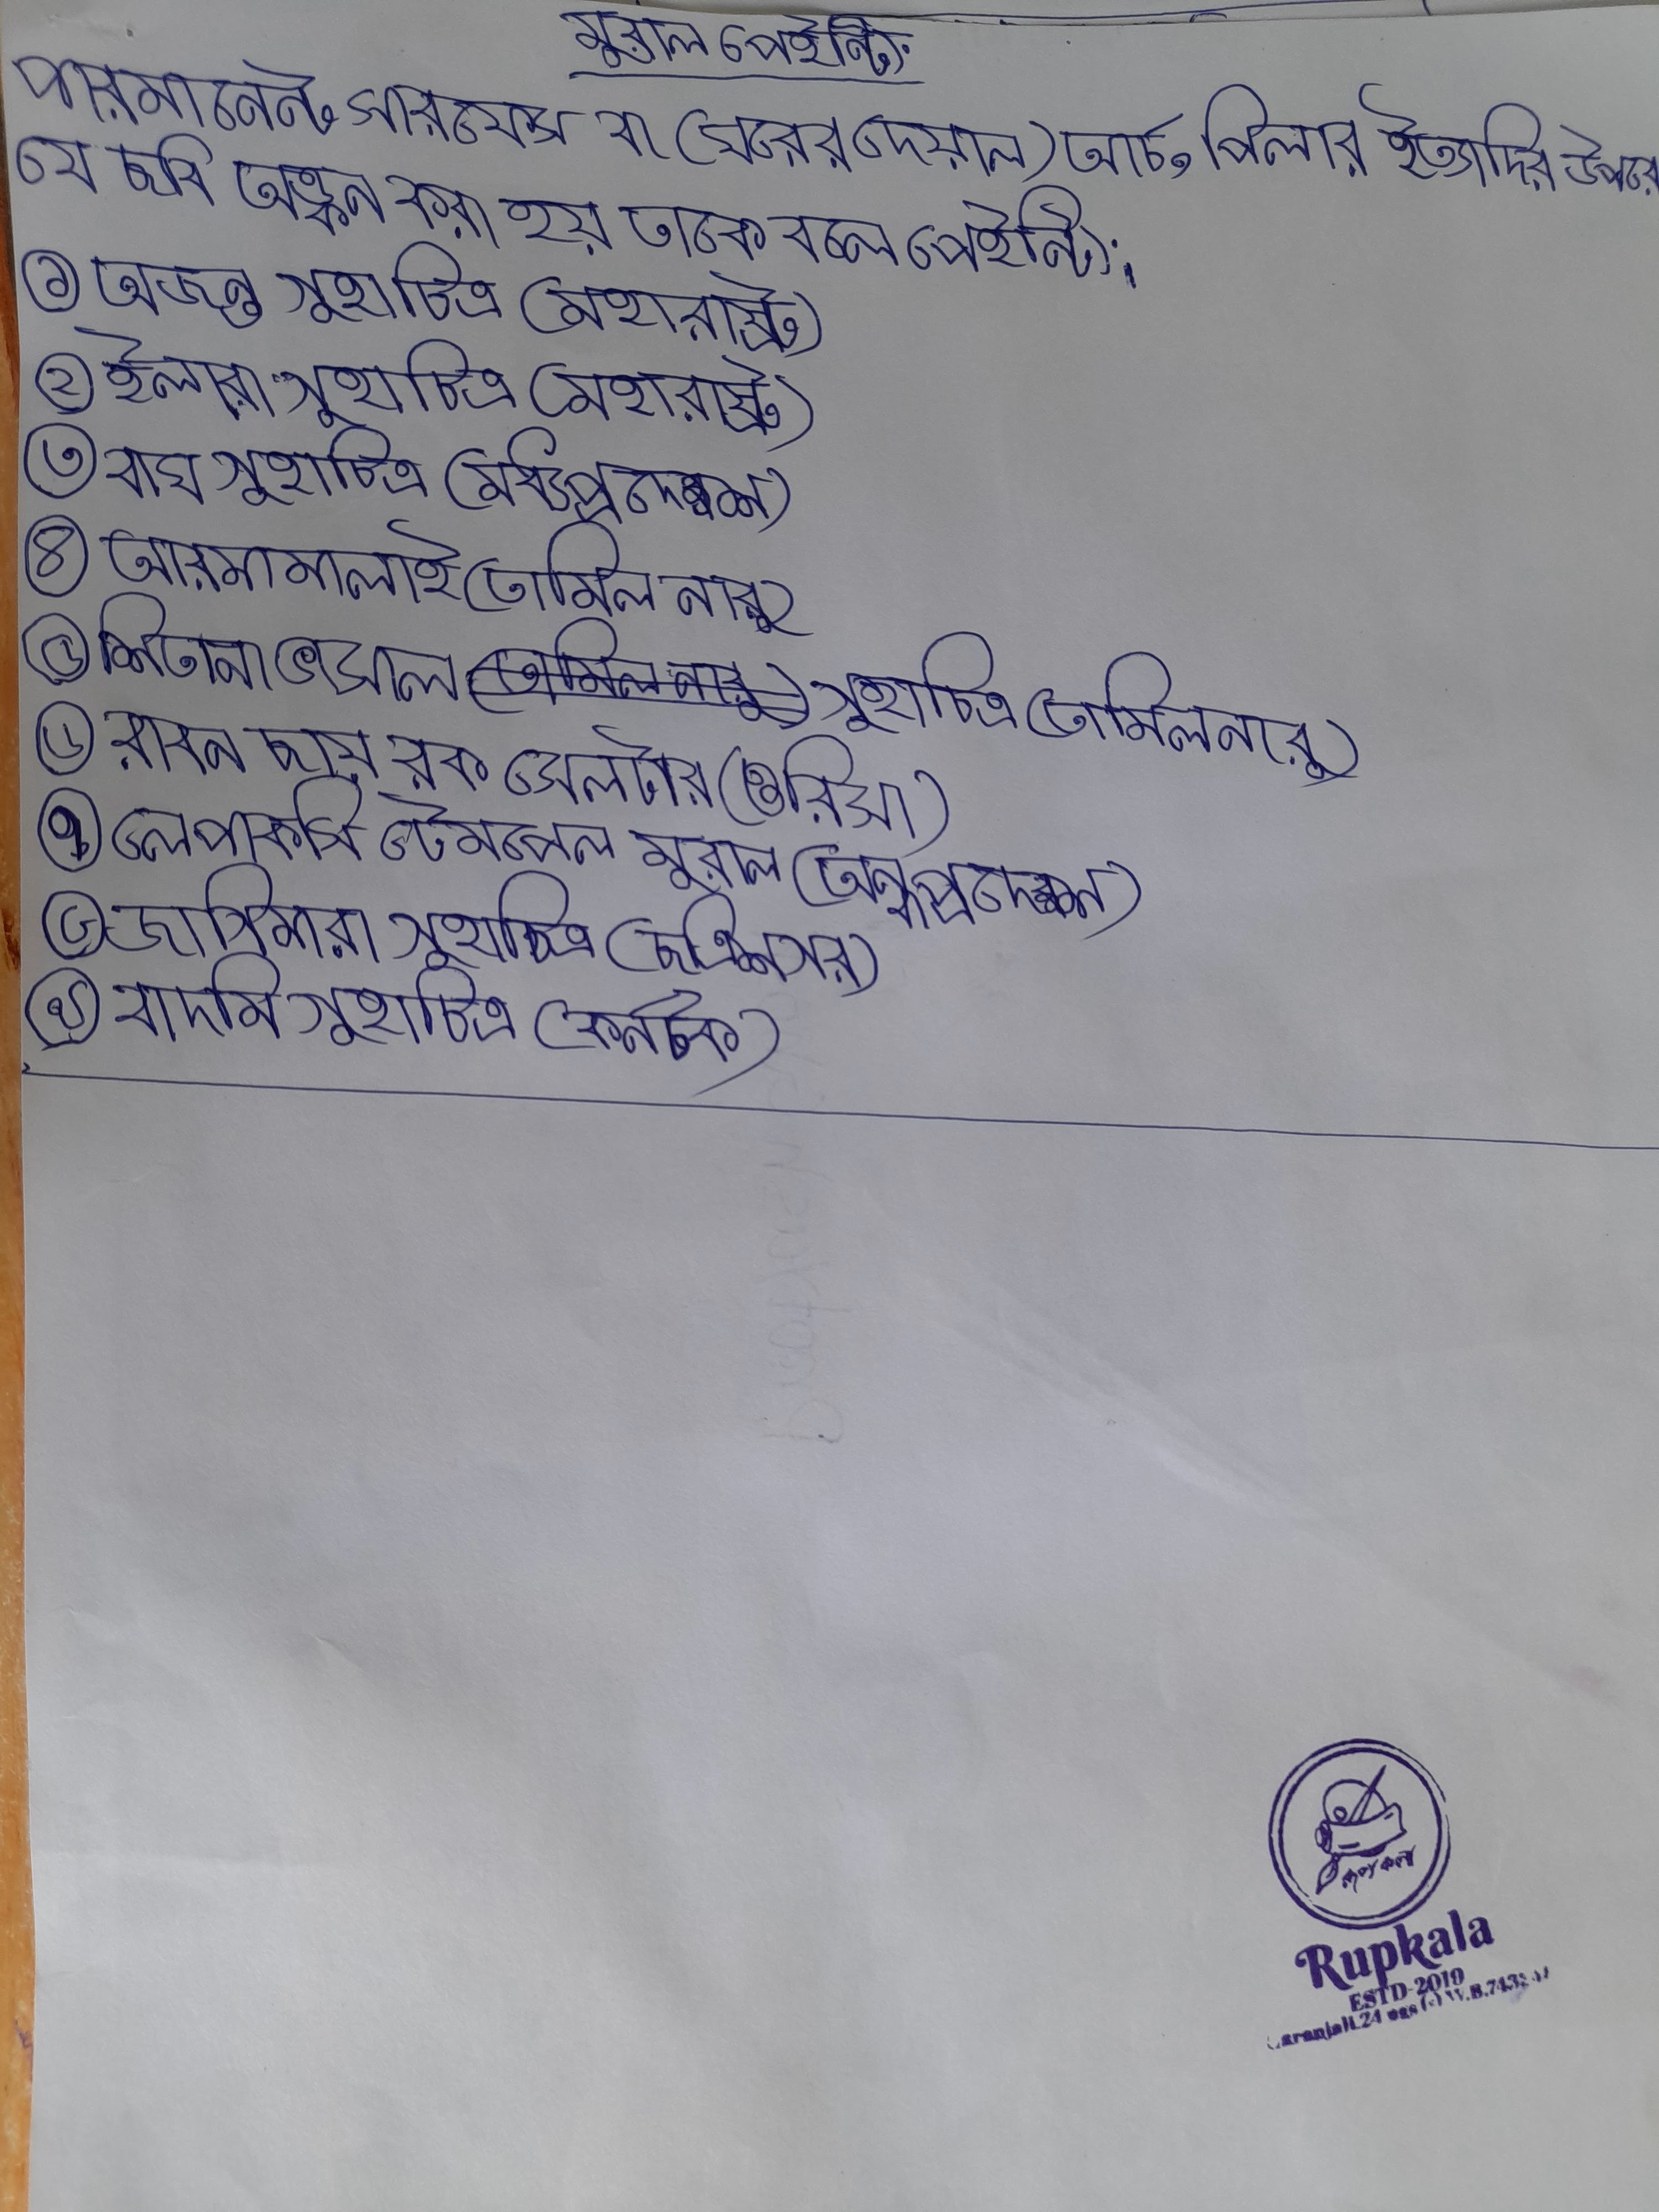 মুরাল পেইন্টিং
পারমানেন্ট সারফেস বা (ঘরের দেয়াল) আর্চ, পিলার ইত্যাদির উপরে
যে ছবি অঙ্কন করা হয় তাকে বলে পেইন্টিং।
১ অজন্তা গুহাচিত্র (মহারাষ্ট্র)
২ ইলোরা গুহাচিত্র (মহারাষ্ট্র)
৩ বাঘ গুহাচিত্র (মধ্যপ্রদেশ)
৪ আরমামালাই (তামিল নারু
৫ শিতানাভাসাল (তামিল নারু) গুহাচিত্র (তামিলনারু)
৬ রাবন ছায়া রক সেলটার (ওরিসা)
৭ লেপাকসি টেমপেল মুরাল (অন্ধ্রপ্রদেশ)
৮ জাগিমারা গুহাচিত্র (ছত্রিশগর)
৯ বাদামি গুহাচিত্র (কর্নাটক)
রূপকলা
Rupkala
ESTD-2019